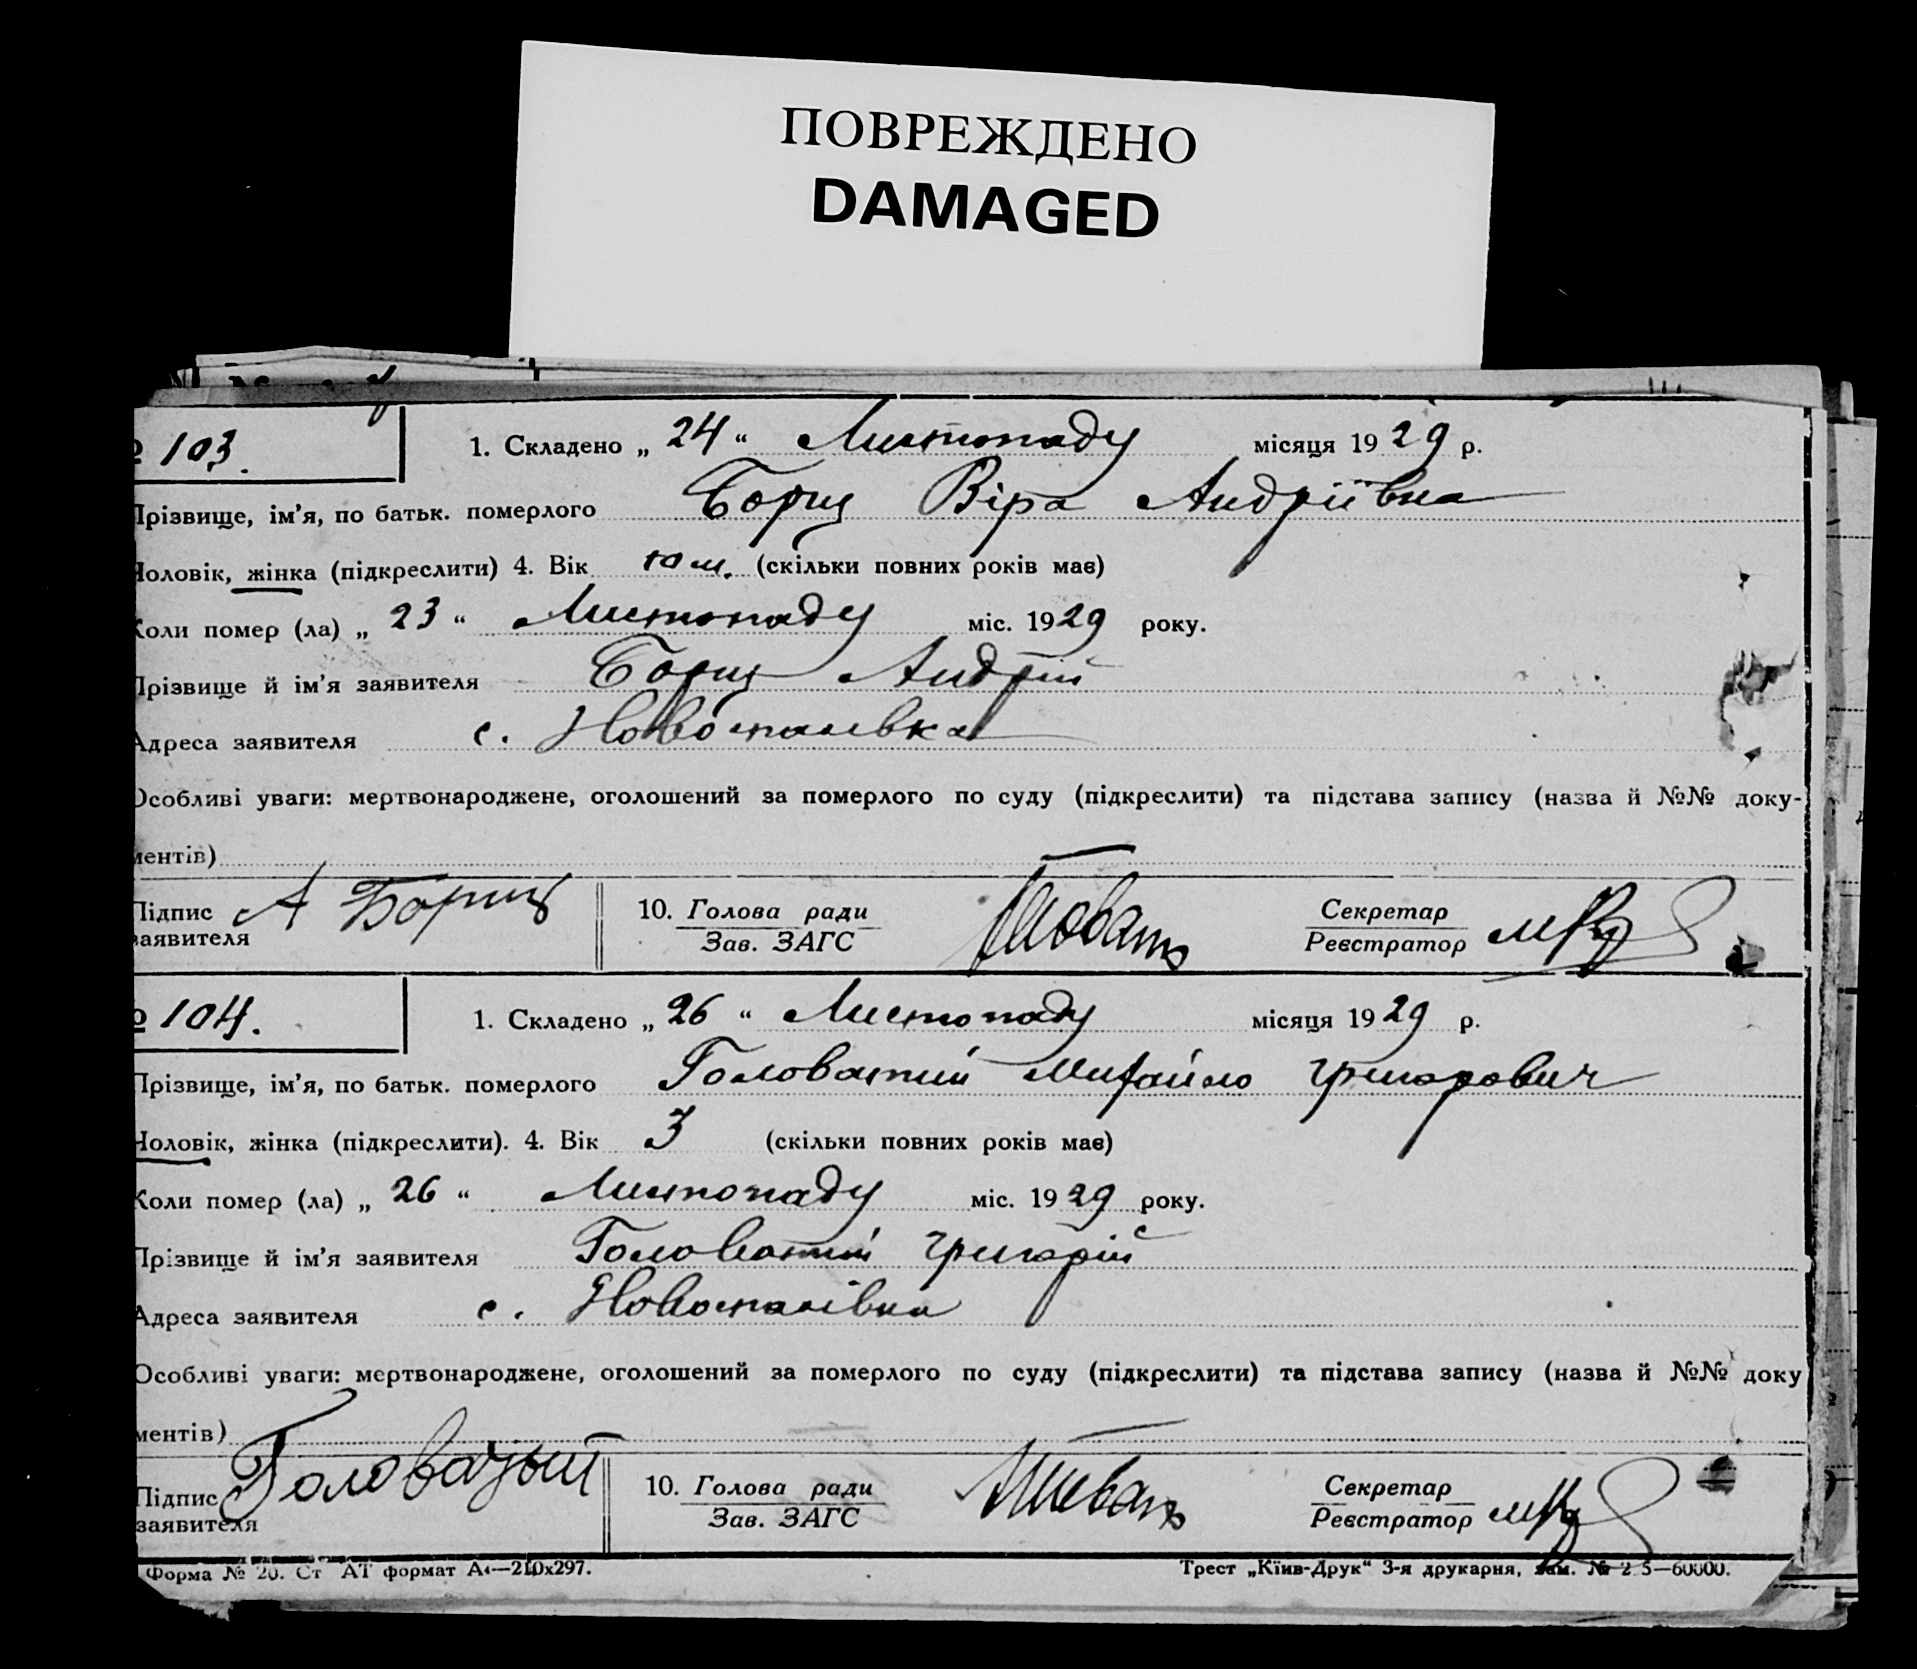 ПОВРЕЖДЕНО
DAMAGED
№ 103.
1. Складено „ 24 “ Листопаду місяця 19 29 р.
Прізвище, ім’я, по батьк. померлого Борщ Віра Андріївна
Чоловік, жінка (підкреслити) 4. Вік (скільки повних років має)
Коли помер (ла) „ 23 “ Листопаду міс. 1929 року.
Прізвище й ім’я заявителя Борщ Андрій
Адреса заявителя с. Новопалівка
Особливі уваги: мертвонароджене, оголошений за померлого по суду (підкреслити) та підстава запису (назва й №№ доку-
ментів)
Підпис заявителя А Борщ
10. Голова ради
Зав. ЗАГС
Секретар
Реєстратор
№ 104.
1. Складено „ 26 “ Листопаду місяця 19 29 р.
Прізвище, ім’я, по батьк. померлого Головатий Михайло Григорович
Чоловік, жінка (підкреслити). 4. Вік 3 (скільки повних років має)
Коли помер (ла) „ 26 “ Листопаду міс. 19 29 року.
Прізвище й ім’я заявителя Головатий Григорій
Адреса заявителя с. Новопалівка
Особливі уваги: мертвонароджене, оголошений за померлого по суду (підкреслити) та підстава запису (назва й №№ доку
ментів)
Підпис заявителя Головацый
10. Голова ради
Зав. ЗАГС
Секретар
Реєстратор
Форма № 20. Ст АТ формат А4—210х297.
Трест „Київ-Друк“ 3-я друкарня, зам. №